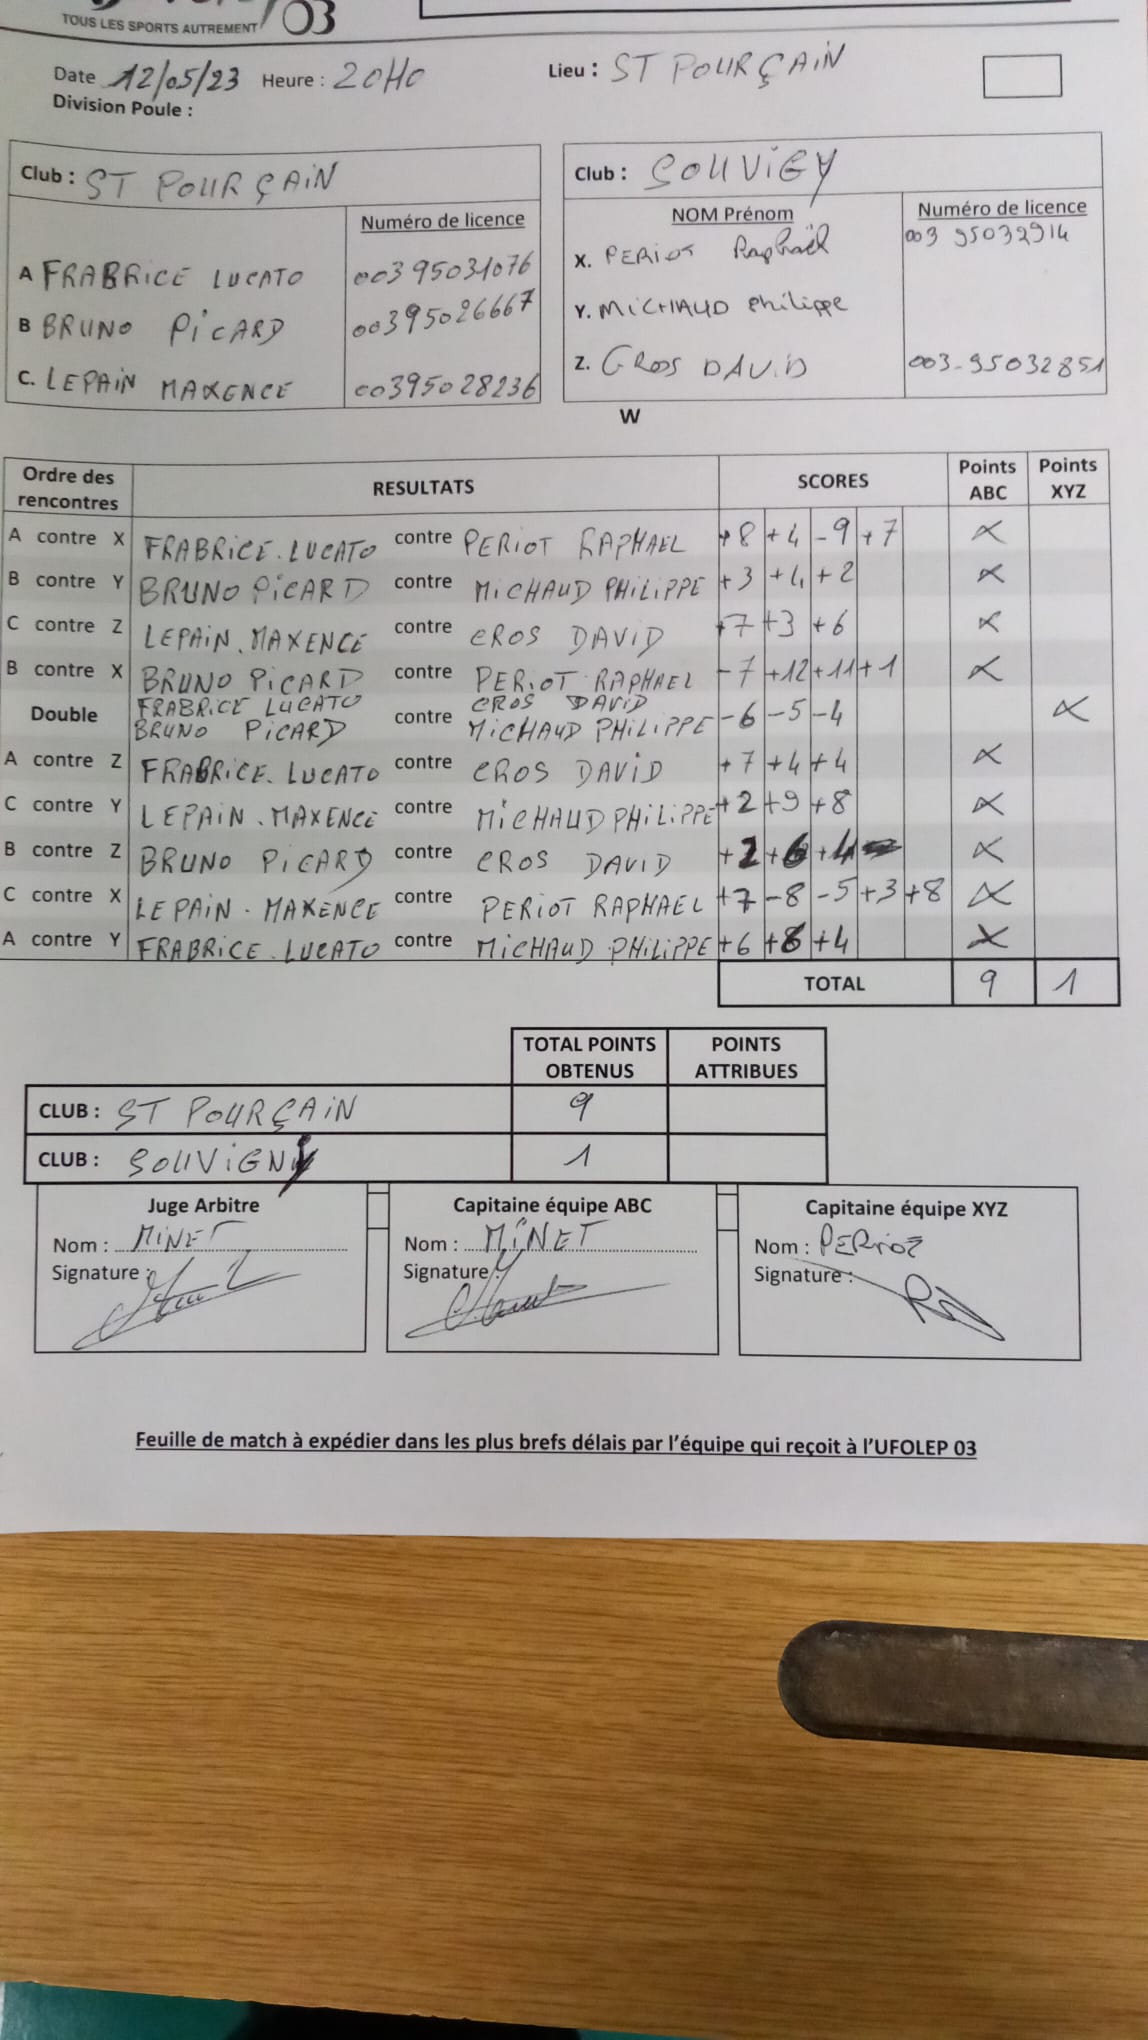 TOUS LES SPORTS AUTREMENT 03
Date 12/05/23 Heure : 20H0 Lieu : ST POURÇAIN
Division Poule :
Club : ST POURÇAIN
Numéro de licence
A FRABRICE LUCATO 00395031076
B BRUNO PICARD 00395026667
C. LEPAIN MAXENCE 00395028236
Club : SOUVIGY
NOM Prénom Numéro de licence
X. PERIOT Raphaël 003 95032914
Y. MICHAUD Philippe
Z. GROS DAVID 003-95032851
W
Ordre des rencontres RESULTATS SCORES Points ABC Points XYZ
A contre X FRABRICE. LUCATO contre PERIOT RAPHAEL +8 +4 -9 +7 X
B contre Y BRUNO PICARD contre MICHAUD PHILIPPE +3 +4 +2 X
C contre Z LEPAIN. MAXENCE contre CROS DAVID +7 +3 +6 X
B contre X BRUNO PICARD contre PERIOT RAPHAEL -7 +12 +11 +1 X
FRABRICE LUCATO CROS DAVID
Double BRUNO PICARD contre MICHAUD PHILIPPE -6 -5 -4 X
A contre Z FRABRICE. LUCATO contre CROS DAVID +7 +4 +4 X
C contre Y LEPAIN. MAXENCE contre MICHAUD PHILIPPE +2 +9 +8 X
B contre Z BRUNO PICARD contre CROS DAVID +2 +6 +4 X
C contre X LEPAIN. MAXENCE contre PERIOT RAPHAEL +7 -8 -5 +3 +8 X
A contre Y FRABRICE. LUCATO contre MICHAUD PHILIPPE +6 +8 +4 X
TOTAL 9 1
TOTAL POINTS OBTENUS POINTS ATTRIBUES
CLUB : ST POURÇAIN 9
CLUB : SOUVIGNY 1
Juge Arbitre
Nom : MINET
Signature :
Capitaine équipe ABC
Nom : MINET
Signature :
Capitaine équipe XYZ
Nom : PERIOT
Signature :
Feuille de match à expédier dans les plus brefs délais par l'équipe qui reçoit à l'UFOLEP 03